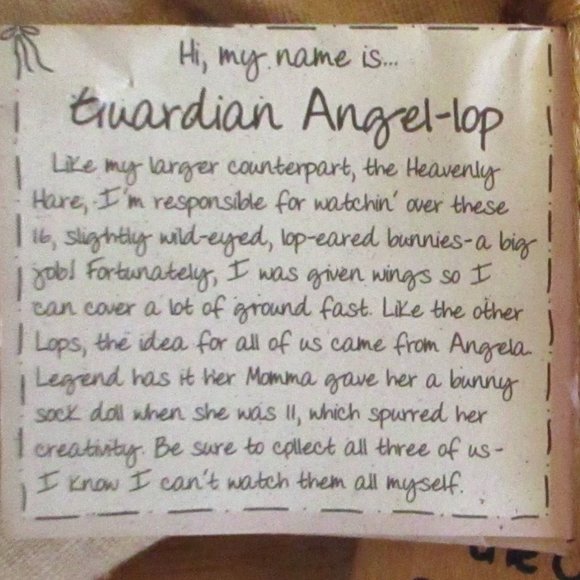 Hi, my name is...
Guardian Angel-lop
Like my larger counterpart, the Heavenly
Hare, I'm responsible for watchin' over these
16, slightly wild-eyed, lop-eared bunnies-a big
job! Fortunately, I was given wings so I
can cover a lot of ground fast. Like the other
Lops, the idea for all of us came from Angela.
Legend has it Her Momma gave her a bunny
sock doll when she was 11, which spurred her
creativity. Be sure to collect all three of us-
I know I can't watch them all myself.